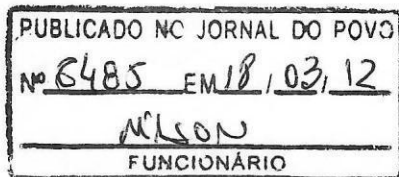 PUBLICADO NO JORNAL DO POVO
Nº 6485 EM 18, 03, 12
Nilson
FUNCIONÁRIO